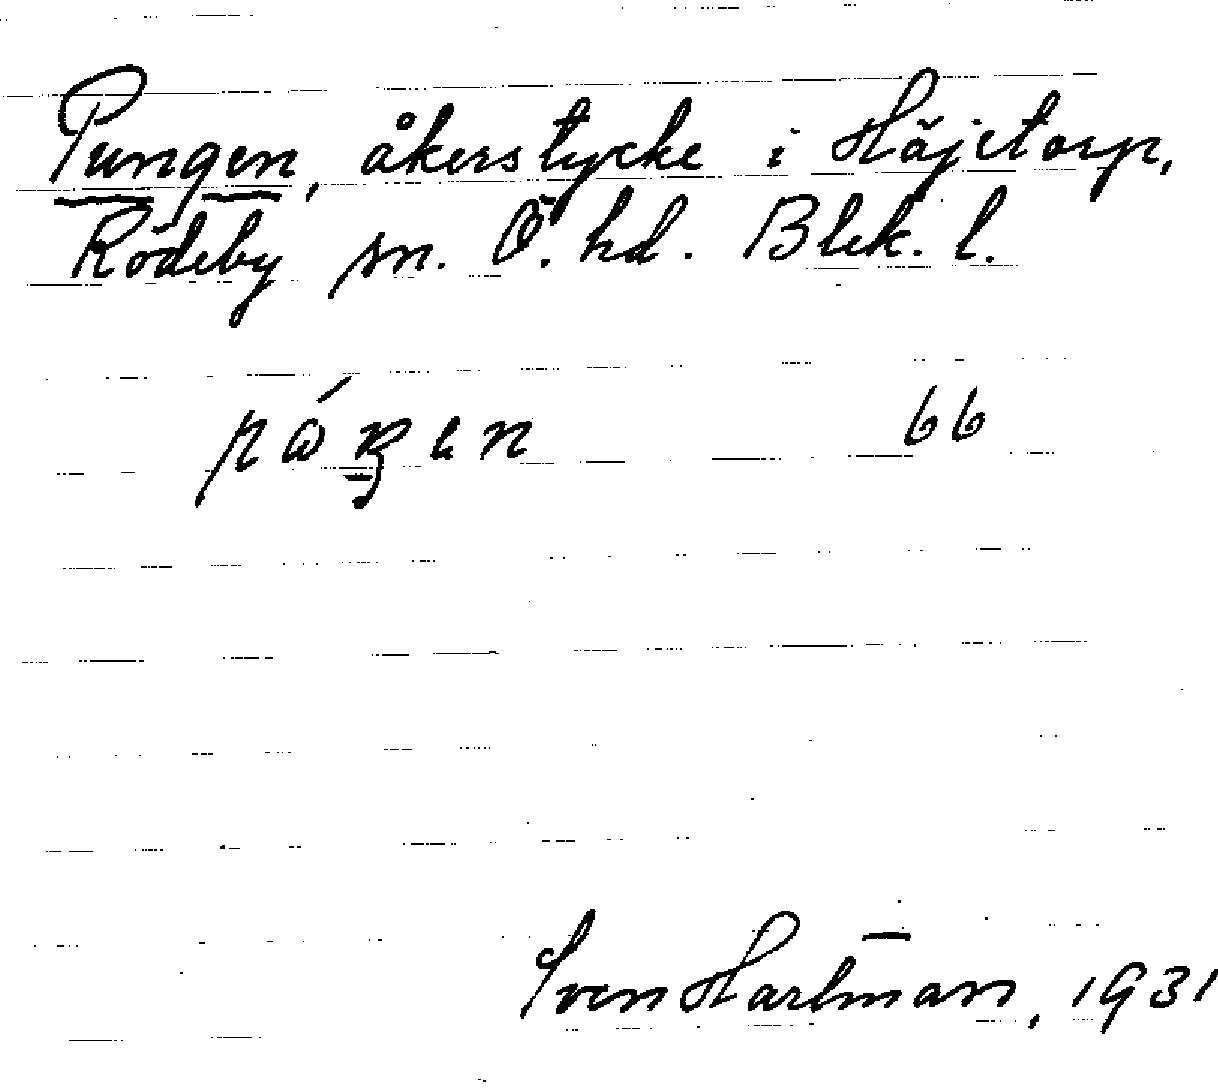 Pungen, åkerstycke i Höjetorp,
Rödeby sn. Ö. hd. Blek. l.
66
Sven Hartman, 1931